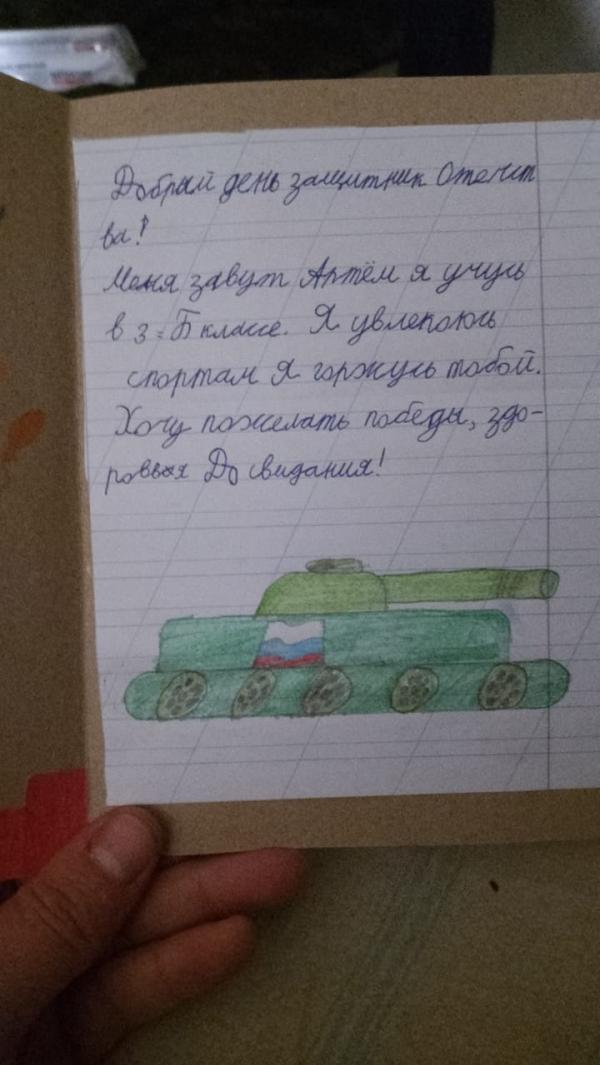 Добрый день защитник Отечест
ва!
Меня завут Артём я учусь
в 3-Б классе. Я увлекоюсь
спортам Я горжусь тобой.
Хочу пожелать победы, здо-
ровья До свидания!